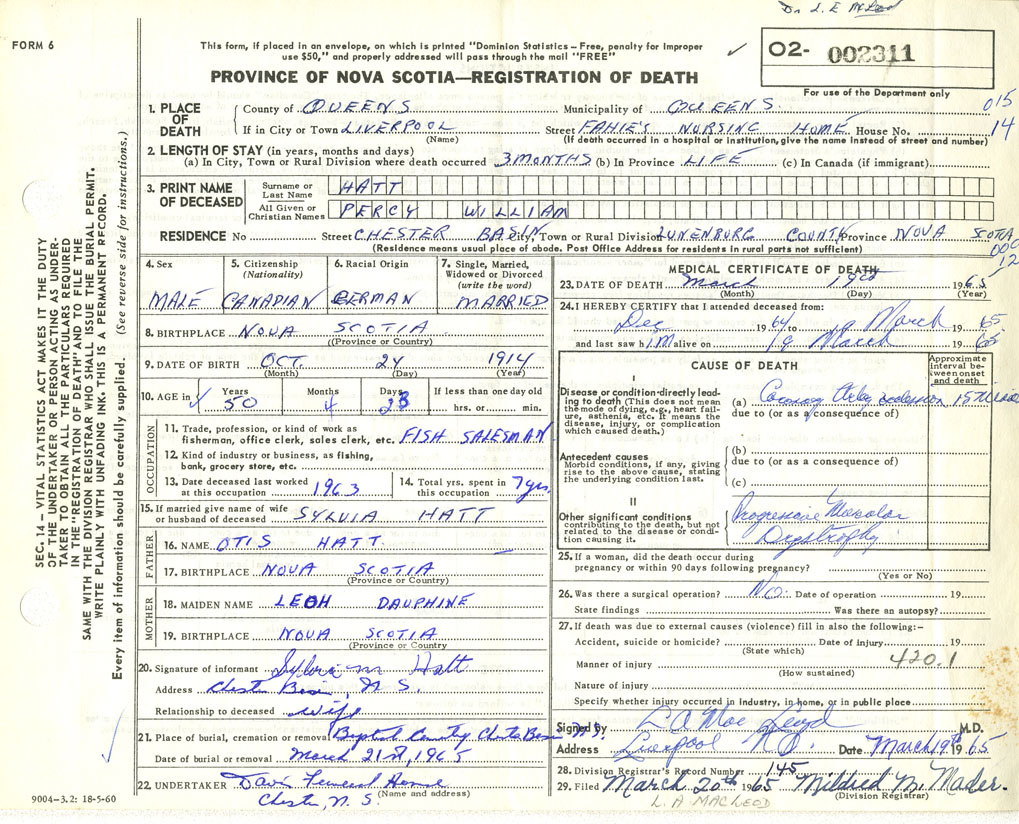 Dr L. E. McLeod
FORM 6
This form, if placed in an envelope, on which is printed "Dominion Statistics – Free, penalty for improper
use $50," and properly addressed will pass through the mail "FREE"
PROVINCE OF NOVA SCOTIA—REGISTRATION OF DEATH
O2- 002311
For use of the Department only
015
14
1. PLACE OF DEATH County of QUEENS Municipality of QUEENS
If in City or Town LIVERPOOL Street FAHIE'S NURSING HOME House No.
(Name) (If death occurred in a hospital or institution, give the name instead of street and number)
2. LENGTH OF STAY (in years, months and days)
(a) In City, Town or Rural Division where death occurred 3 MONTHS (b) In Province LIFE (c) In Canada (if immigrant)
3. PRINT NAME OF DECEASED
Surname or Last Name HATT
All Given or Christian Names PERCY WILLIAM
RESIDENCE No Street CHESTER BASIN City, Town or Rural Division LUNENBURG COUNTY Province NOVA SCOTIA
(Residence means usual place of abode. Post Office Address for residents in rural parts not sufficient)
000
12
4. Sex MALE
5. Citizenship (Nationality) CANADIAN
6. Racial Origin GERMAN
7. Single, Married, Widowed or Divorced (write the word) MARRIED
8. BIRTHPLACE NOVA SCOTIA
(Province or Country)
9. DATE OF BIRTH OCT. 24 1914
(Month) (Day) (Year)
10. AGE in Years 50 Months 4 Days 23 If less than one day old hrs. or min.
OCCUPATION
11. Trade, profession, or kind of work as
fisherman, office clerk, sales clerk, etc. FISH SALESMAN
12. Kind of industry or business, as fishing,
bank, grocery store, etc.
13. Date deceased last worked at this occupation 1963
14. Total yrs. spent in this occupation 7 yrs.
15. If married give name of wife
or husband of deceased SYLVIA HATT
FATHER
16. NAME OTIS HATT
17. BIRTHPLACE NOVA SCOTIA
(Province or Country)
MOTHER
18. MAIDEN NAME LEOH DAUPHINE
19. BIRTHPLACE NOVA SCOTIA
(Province or Country)
20. Signature of informant Sylvia M Hatt
Address Chester Basin, N.S.
Relationship to deceased wife
21. Place of burial, cremation or removal Baptist Chester Basin N.S.
Date of burial or removal March 21st, 1965
22. UNDERTAKER Davis Funeral Home
(Name and address)
Chester, N.S.
9004-3.2: 18-5-60
MEDICAL CERTIFICATE OF DEATH
23. DATE OF DEATH March 19th 1965
(Month) (Day) (Year)
24. I HEREBY CERTIFY that I attended deceased from:
Dec 1964 to 19 March 1965
and last saw him alive on 19 March 1965
CAUSE OF DEATH
Approximate interval between onset and death
I
Disease or condition directly leading to death (This does not mean the mode of dying, e.g., heart failure, asthenia, etc. It means the disease, injury, or complication which caused death.)
(a) Coronary Artery occlusion 15 Minutes
due to (or as a consequence of)
Antecedent causes
Morbid conditions, if any, giving rise to the above cause, stating the underlying condition last.
(b)
due to (or as a consequence of)
(c)
II
Other significant conditions
contributing to the death, but not related to the disease or condition causing it.
Progressive Muscular
Drystrophy
25. If a woman, did the death occur during
pregnancy or within 90 days following pregnancy?
(Yes or No)
26. Was there a surgical operation? No. Date of operation 19
State findings Was there an autopsy?
27. If death was due to external causes (violence) fill in also the following:-
Accident, suicide or homicide? Date of injury 19
(State which)
420.1
Manner of injury
(How sustained)
Nature of injury
Specify whether injury occurred in industry, in home, or in public place
Signed by L A MacLeod M.D.
Address Liverpool N.S. Date March 19th 1965
28. Division Registrar's Record Number 145
29. Filed March 20th 1965 Mildred M. Mader.
(Division Registrar)
L. A MACLEOD
SEC. 14 – VITAL STATISTICS ACT MAKES IT THE DUTY
OF THE UNDERTAKER OR PERSON ACTING AS UNDER-
TAKER TO OBTAIN ALL THE PARTICULARS REQUIRED
IN THE "REGISTRATION OF DEATH" AND TO FILE THE
SAME WITH THE DIVISION REGISTRAR WHO SHALL ISSUE THE BURIAL PERMIT.
WRITE PLAINLY WITH UNFADING INK. THIS IS A PERMANENT RECORD.
Every item of information should be carefully supplied. (See reverse side for instructions.)